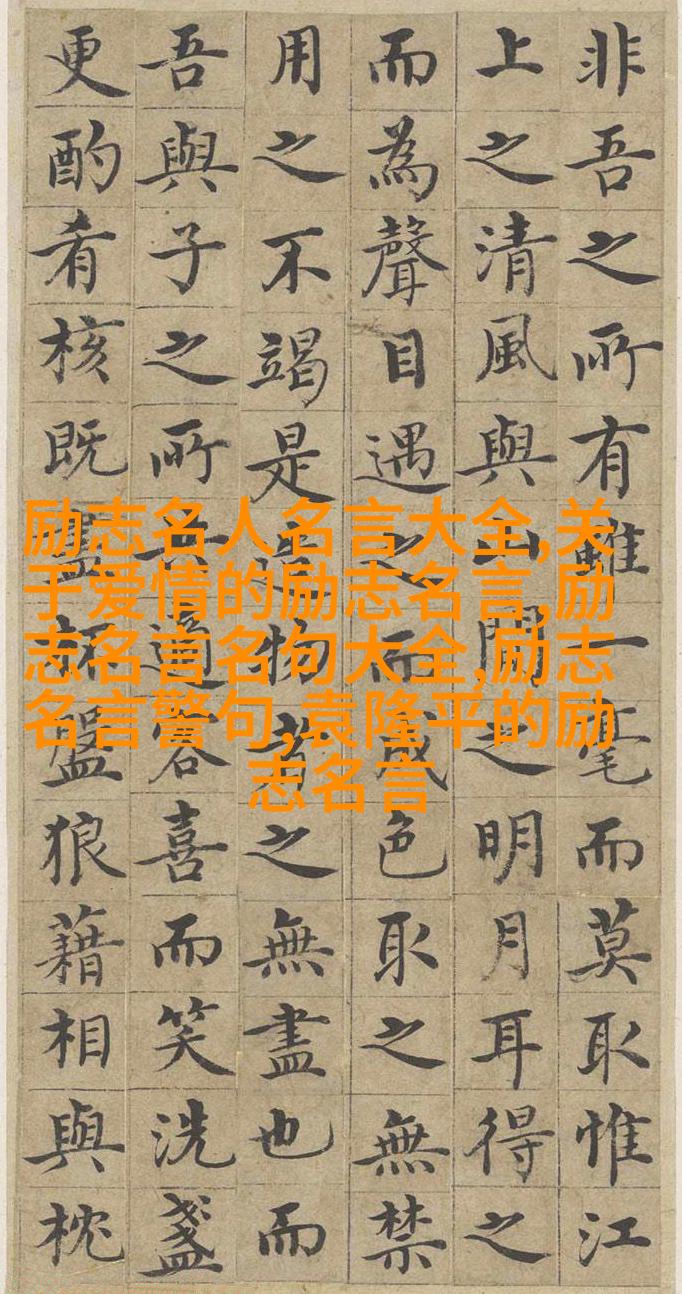 非吾之所有雖一毫而莫取惟江
上之清風與山間之明月耳得之
而為聲目遇之而成色取之無禁
用之不竭是造物者之無盡也而
吾與子之所共適客喜而笑洗盞
更酌肴核既盡杯盤狼藉相與枕
励志名人名言大全,关
于爱情的励志名言,励
志名言名句大全,励志
名言警句,袁隆平的励
志名言